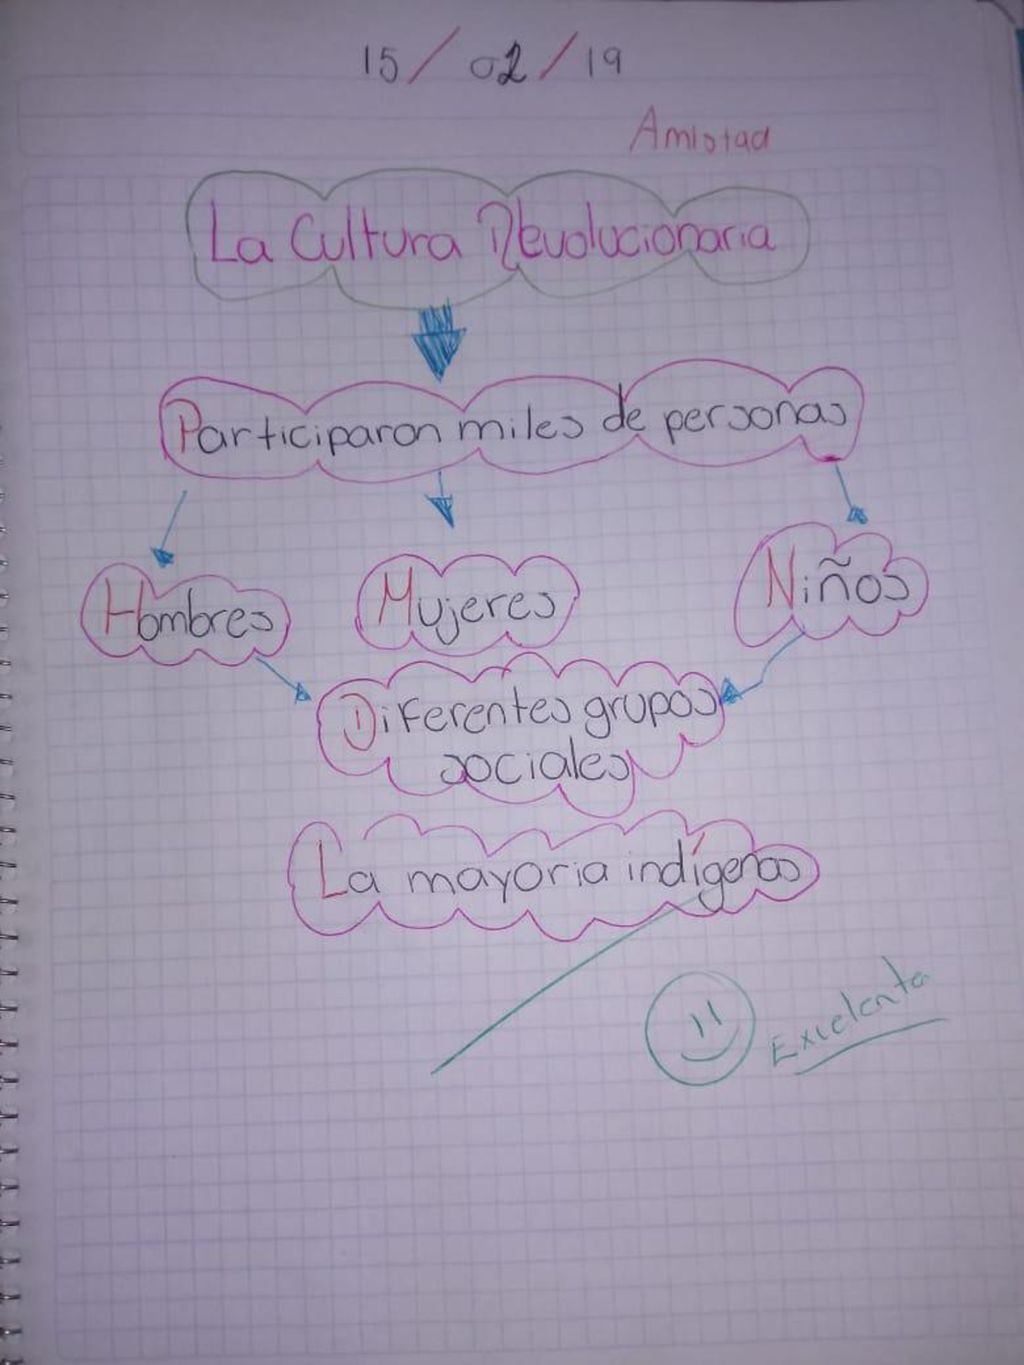 15/02/19
Amistad
La Cultura Revolucionaria
Participaron miles de personas
Hombres Mujeres Niños
Diferentes grupos
sociales
La mayoria indígenas
Excelente